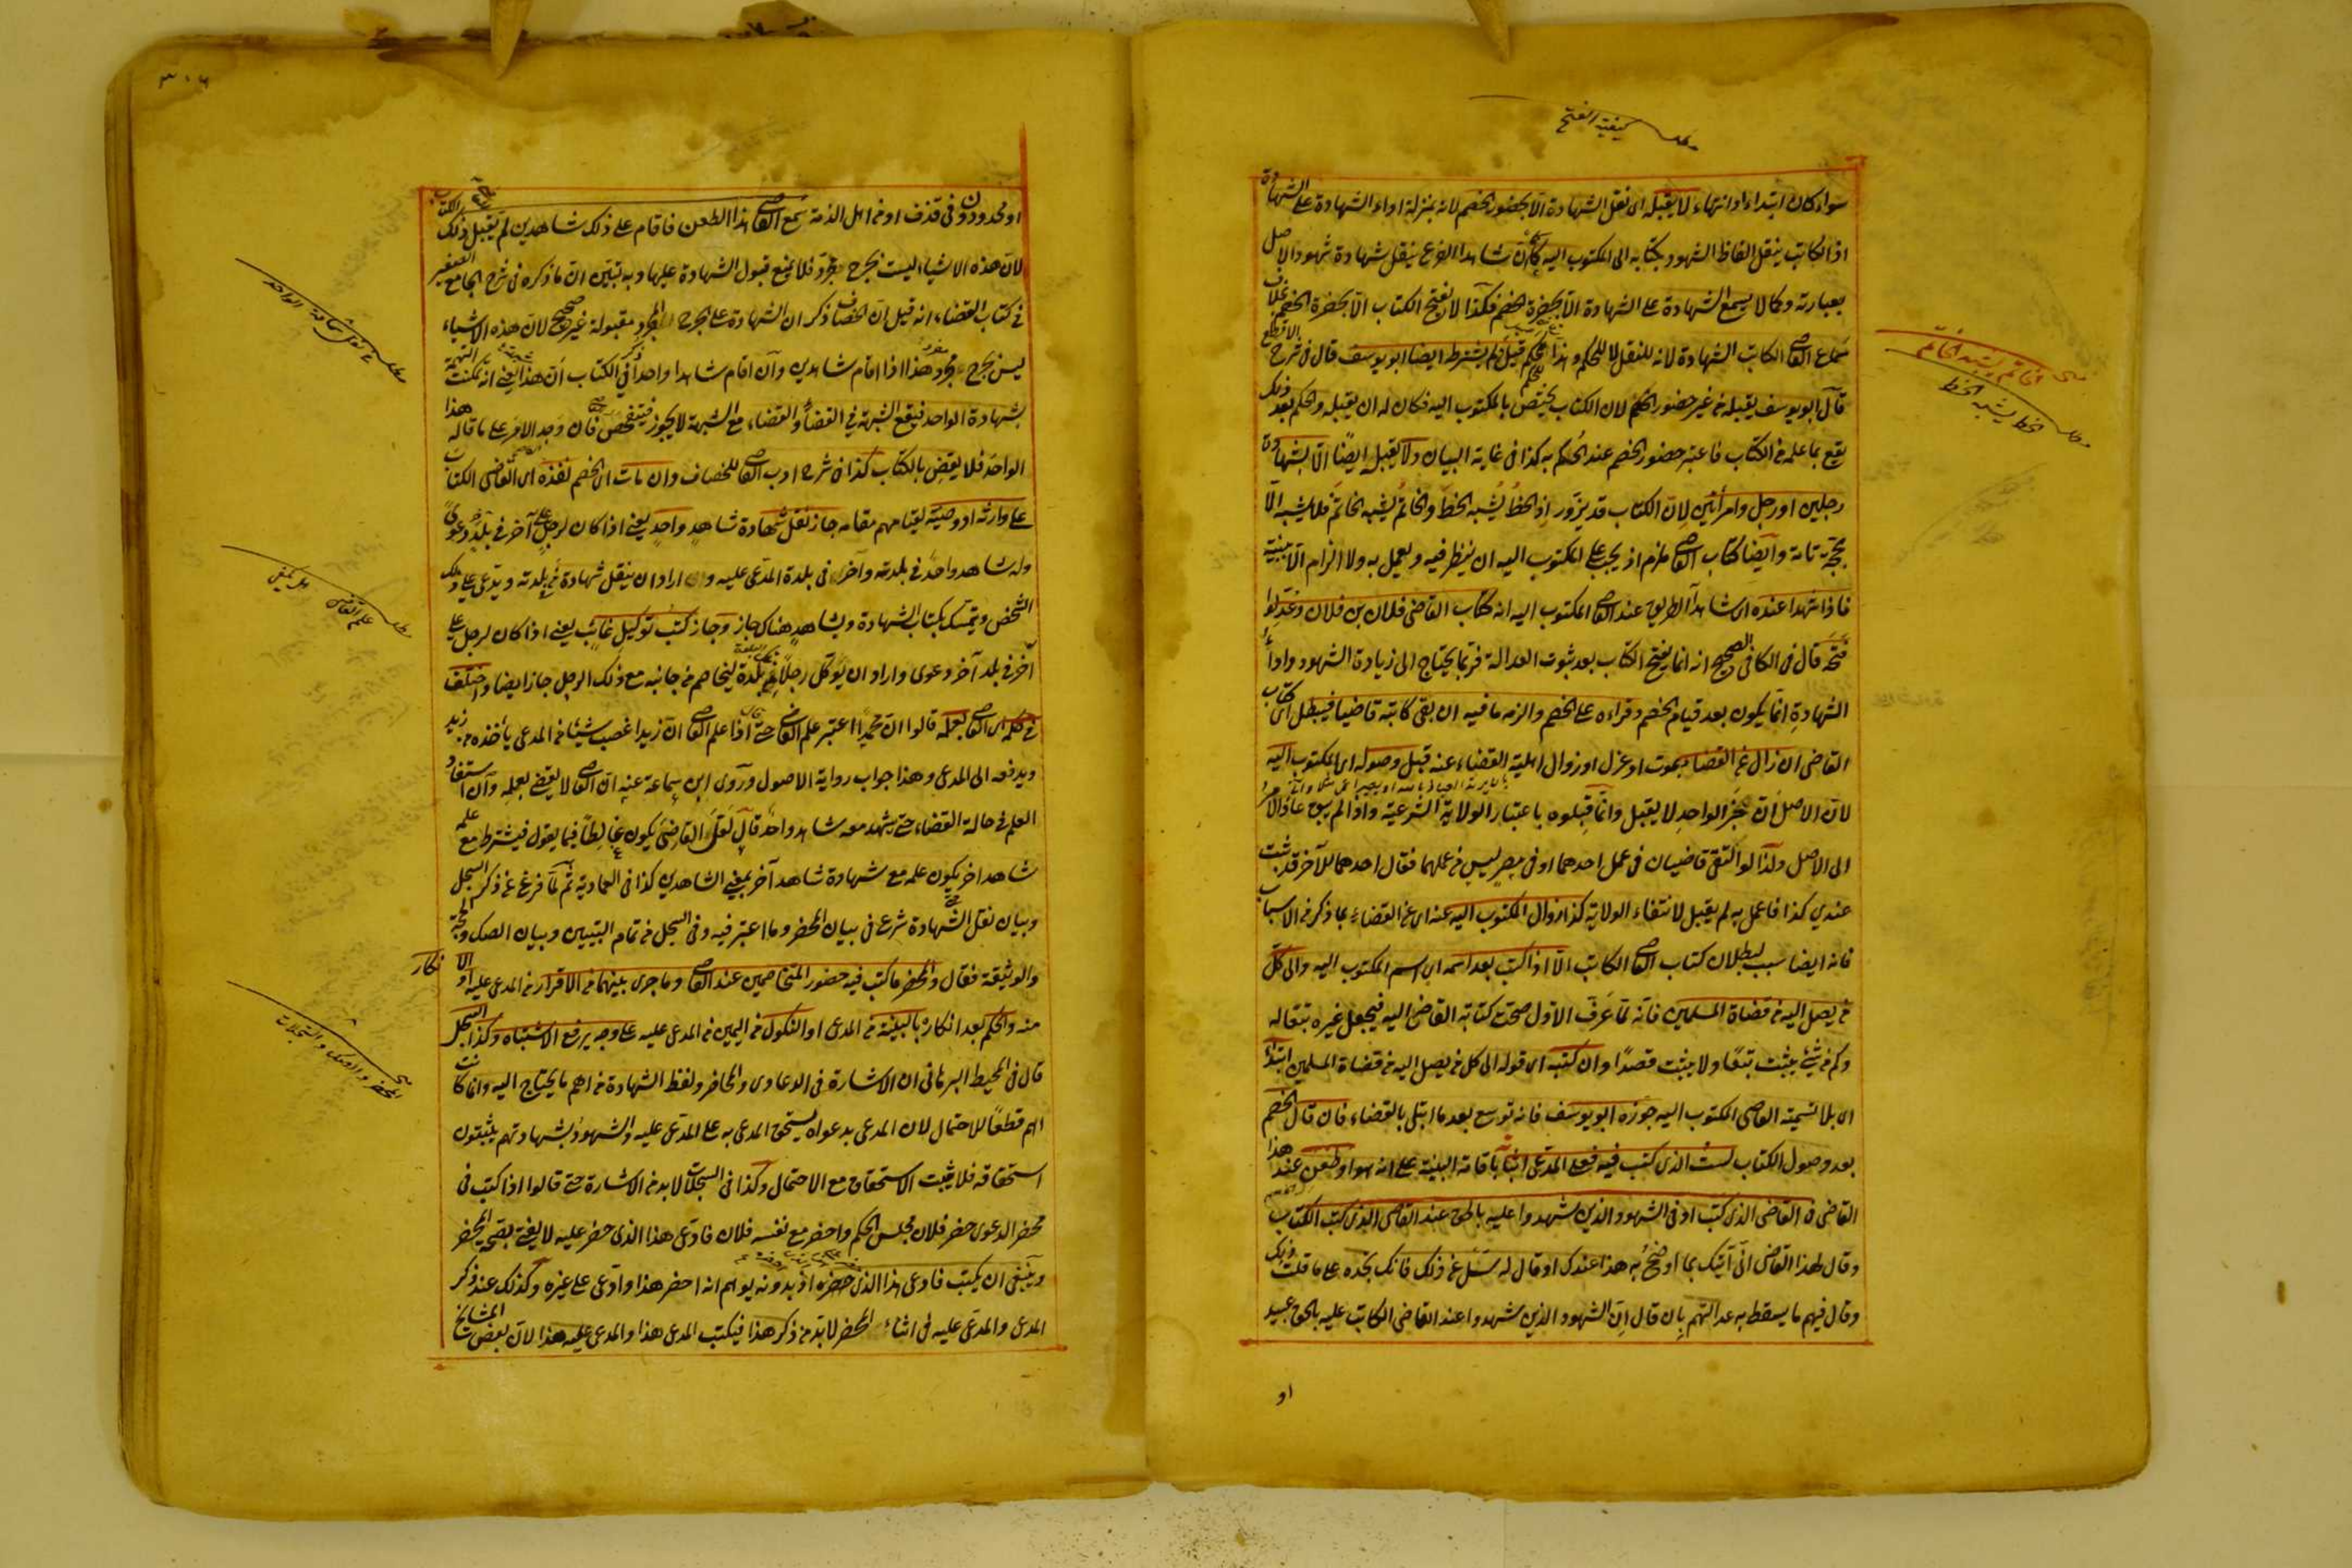 كيفية الفتح
سواء كان ابتداء او انتهاء لا يقبله اى نقل الشهادة الا بحضور الخصم لانه بمنزلة اداء الشهادة على الشهادة
اذ الكاتب ينقل الفاظ الشهود بكتابه الى المكتوب اليه كما ان شاهد الفرع ينقل شهادة شهود الاصل
بعبارته وكما لا يسمع الشهادة على الشهادة الا بحضرة الخصم فكذا لا يفتح الكتاب الا بحضرة الخصم بخلاف
سماع القاضى الكاتب الشهادة لانه للنقل لا للحكم وهذا قيل لم يشترط ايضا ابو يوسف قال فى شرح الاقطع
قال ابو يوسف يقبله من غير حضور الخصم لان الكتاب يختص بالمكتوب اليه فكان له ان يقبله والحكم بعد ذلك
يقع بما علمه من الكتاب فاعتبر حضور الخصم عند الحكم به كذا فى غاية البيان ولا يقبله ايضًا الا بشهادة
رجلين او رجل وامرأتين لان الكتاب قد يزوّر اذ الخط يُشبه الخط والخاتم يُشبه الخاتم فلا يثبت الا
بحجة تامة وايضا كتاب القاضى ملزم اذ يجب على المكتوب اليه ان ينظر فيه ويعمل به ولا الزام الا ببينة
فاذا شهدا عنده اى شاهدا الطريق عند القاضى المكتوب اليه انه كتاب القاضى فلان بن فلان وعدلوا
فتحه قال فى الكافى الصحيح انه انما يفتح الكتاب بعد ثبوت العدالة فربما يحتاج الى زيادة الشهود واداء
الشهادة انما يكون بعد قيام الخصم وقراءه على الخصم والزمه ما فيه ان بقى كاتبه قاضيا فيبطل اى كتاب
القاضى ان زال عن القضاء بموت او عزل او زوال اهلية القضاء عنه قبل وصوله اى المكتوب اليه
لان الاصل ان خبر الواحد لا يقبل وانما قبلوه باعتبار الولاية الشرعية واذا لم يبق عاد الامر
الى الاصل ولذا لو التقى قاضيان فى عمل احدهما او فى مصر ليس فى عملهما فقال احدهما للآخر قد ثبت
عندي كذا فاعمل به لم يقبل لانتفاء الولاية كذا زوال المكتوب اليه عنه اى عن القضاء بما ذكر من الاسباب
فانه ايضا سبب لبطلان كتاب القاضى الكاتب الا اذا كتب بعد اسمه اى اسم المكتوب اليه والى كل
من يصل اليه من قضاة المسلمين فانه لما عرف الاول صحت كتابة القاضى اليه فيجعل غيره تبعًا له
وكم من شئ يثبت تبعًا ولا يثبت قصدًا وان كتبه اى قوله الى كل من يصل اليه من قضاة المسلمين ابتداءً
اى بلا تسمية القاضى المكتوب اليه جوزه ابو يوسف فانه توسع بعد ما ابتلى بالقضاء فان قال الخصم
بعد وصول الكتاب لست الذى كتب فيه فعلى المدعى اثباته باقامة البينة على انه هو او طعن عند هذا
القاضى فى القاضى الذى كتب او فى الشهود الذين شهدوا عليه بالحق عند القاضى الذى كتب الكتاب
وقال لهذا القاضى انى آتيك بما اوضح به هذا عندك او قال له سَل عن ذلك فانك تجده على ما قلت
وقال فيهم ما يسقط به عدالتهم بان قال ان الشهود الذين شهدوا عند القاضى الكاتب عليه بالحق عبيد
او
الخاتم يشبه الخاتم
الخط يشبه الخط
او محدودون فى قذف او من اهل الذمة سمع القاضى هذا الطعن فاقام على ذلك شاهدين لم يقبل ذلك
لان هذه الاشياء ليست بجرح مجرد فلا يمنع قبول الشهادة عليها وبه تبين ان ما ذكره فى شرح الجامع الصغير
فى كتاب القضاء انه قيل ان الخصاف ذكر ان الشهادة على الجرح المجرد مقبولة غير صحيح لان هذه الاشياء
ليس بجرح مجرد هذا اذا اقام شاهدين وان اقام شاهدا واحدا فى الكتاب ان هذا يعنى انه تمكنت التهمة
بشهادة الواحد فيقع الشبهة فى القضاء والقضاء مع الشبهة لا يجوز فيتفحص فان وجد الامر على ما قاله هذا
الواحد فلا يقضى بالكتاب كذا فى شرح ادب القاضى للخصاف وان مات اى الخصم نفذه اى القاضى الكتاب
على وارثه او وصيه لقيامهم مقامه جاز نقل شهادة شاهد واحد يعنى اذا كان لرجل على آخر فى بلد دعوىً
وله شاهد واحد فى بلدته وآخر فى بلدة المدعى عليه واراد ان ينقل شهادة من فى بلدته ويدعى على ذلك
الشخص ويتمسك بكتاب الشهادة وبشاهد هناك جاز وجاز كتب توكيل غائب يعنى اذا كان لرجل على
آخر فى بلد آخر دعوى واراد ان يوكل رجلًا فى بلدة ليخاصم من جانبه مع ذلك الرجل جاز ايضا واختلف
فى حكم اى القاضى بعلمه قالوا ان محمدا اعتبر علم القاضى حتى اذا علم القاضى ان زيدا غصب شيئا من المدعى يأخذه من زيد
ويدفعه الى المدعى وهذا جواب رواية الاصول وروى ابن سماعة عنه ان القاضى لا يقضى بعلمه وان استفاد
العلم فى حالة القضاء حتى يشهد معه شاهد واحد قال لعل القاضى يكون غالطًا فيما يقول فيشترط مع علمه
شاهد اخر يكون علمه مع شهادة شاهد آخر بمعنى الشاهدين كذا فى العمادية ثم لما فرغ عن ذكر السجل
وبيان نقل الشهادة شرع فى بيان المحضر وما اعتبر فيه وفى السجل من تمام التبيين وبيان الصك والحجة
والوثيقة فقال والمحضر ما كتب فيه حضور المتخاصمين عند القاضى وما جرى بينهما من الاقرار من المدعى عليه او الانكار
منه والحكم بعد انكاره بالبينة من المدعى او النكول من اليمين من المدعى عليه على وجه يرفع الاشتباه وكذا السجل
قال فى المحيط البرهانى ان الاشارة فى الدعاوى والمحاضر ولفظ الشهادة من اهم ما يحتاج اليه وانما كانت
اهم قطعًا للاحتمال لان المدعى بدعواه يستحق المدعى به على المدعى عليه والشهود بشهادتهم يثبتون
استحقاقه فلا يثبت الاستحقاق مع الاحتمال وكذا فى السجلات لا بد من الاشارة حتى قالوا اذا كتب فى
محضر الدعوى حضر فلان مجلس الحكم واحضر مع نفسه فلان فادعى هذا الذى حضر عليه لا يفتى بصحة المحضر
وينبغى ان يكتب فادعى هذا الذى حضر اذ بدونه يوهم انه احضر هذا وادعى على غيره وكذلك عند ذكر
المدعى والمدعى عليه فى اثناء المحضر لا بد من ذكر هذا فيكتب المدعى هذا والمدعى عليه هذا لان بعض المشايخ
المحضر والصك والسجلات